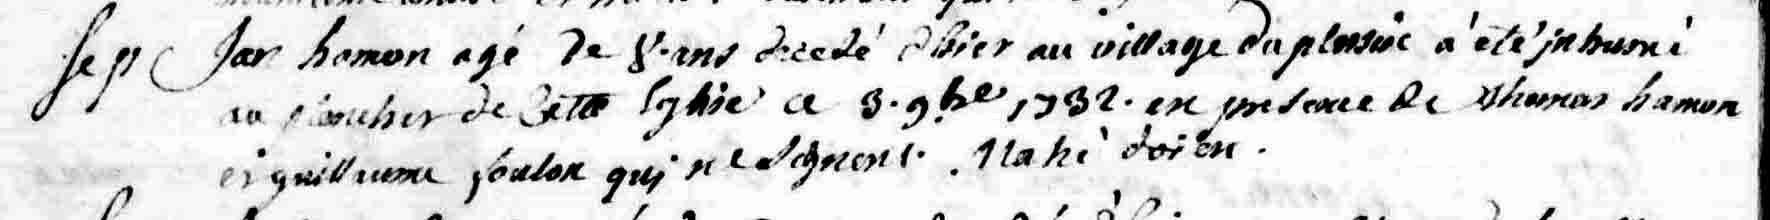 sep Jan hamon agé de 8. ans decedé d'hier au village du plessix a été jnhumé
au plancher de cette Eglise ce 3. 9bre 1732. en presence de Thomas hamon
et guillaume foulon qui ne signent. Mahé doien.